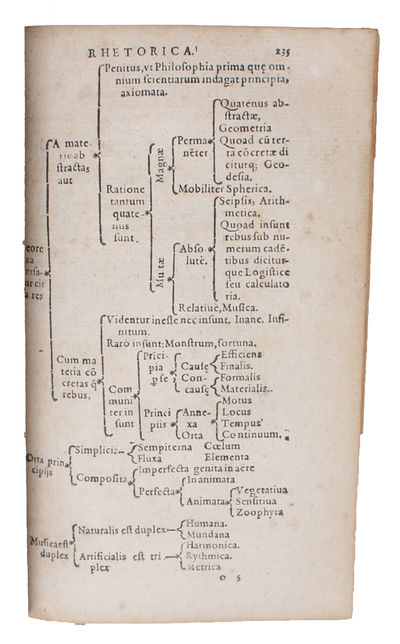 RHETORICA. 235
Penitus, vt Philosophia prima quę om-
nium scientiarum indagat principia,
axiomata.
A mate-
ria ab
stractas
aut
Ratione
tantum
quate-
nus
sunt.
Magnæ
Perma
nēter
Quatenus ab-
stractæ,
Geometria
Quoad cū ter-
ra cōcretæ di
citurq; Geo-
desia.
Mobiliter Spherica.
Multæ
Abso-
lutè.
Seipsis, Arith-
metica.
Quoad insunt
rebus sub nu-
merum cadē-
tibus dicitur-
que Logistice
seu calculato
ria.
Relatiuè, Musica.
eore
ca
ersa-
ur cir
a res
Cum ma
teria cō
cretas q̃
rebus,
Videntur inesse nec insunt. Inane, Infi-
nitum.
Rarò insunt: Monstrum, fortuna.
Com
muni
ter in
sunt
Prici-
pia
Causę
Efficiens
Finalis.
Con-
causę
Formalis
Materialis.
Princi
piis
Anne-
xa
Motus
Locus
Tempus
Orta
Continuum.
Orta prin-
cipijs
Simplicia
Sempiterna Cœlum
Fluxa Elementa
Composita
Imperfecta genita in aëre
Perfecta
Inanimata
Animata
Vegetatiua
Sensitiua
Zoophyta
Musica est
duplex
Naturalis est duplex
Humana.
Mundana
Artificialis est tri
plex
Harmonica.
Rythmica.
Metrica
O 5